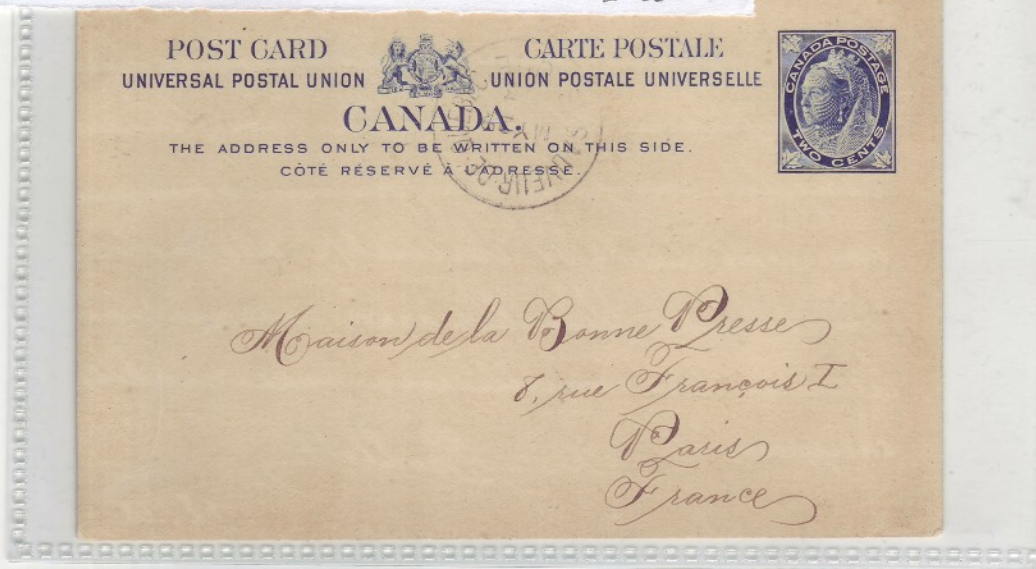 POST CARD CARTE POSTALE
UNIVERSAL POSTAL UNION UNION POSTALE UNIVERSELLE
CANADA.
THE ADDRESS ONLY TO BE WRITTEN ON THIS SIDE.
CÔTÉ RÉSERVÉ À L'ADRESSE.
CANADA POSTAGE
TWO CENTS
MY
Maison de la Bonne Presse
8, rue François I
Paris
France